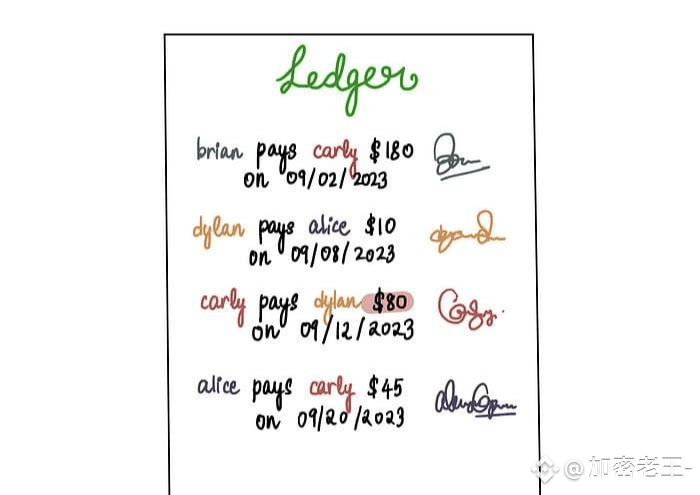 Ledger
brian pays carly $180
on 09/02/2023
dylan pays alice $10
on 09/08/2023
carly pays dylan $80
on 09/12/2023
alice pays carly $45
on 09/20/2023
@加密老王-